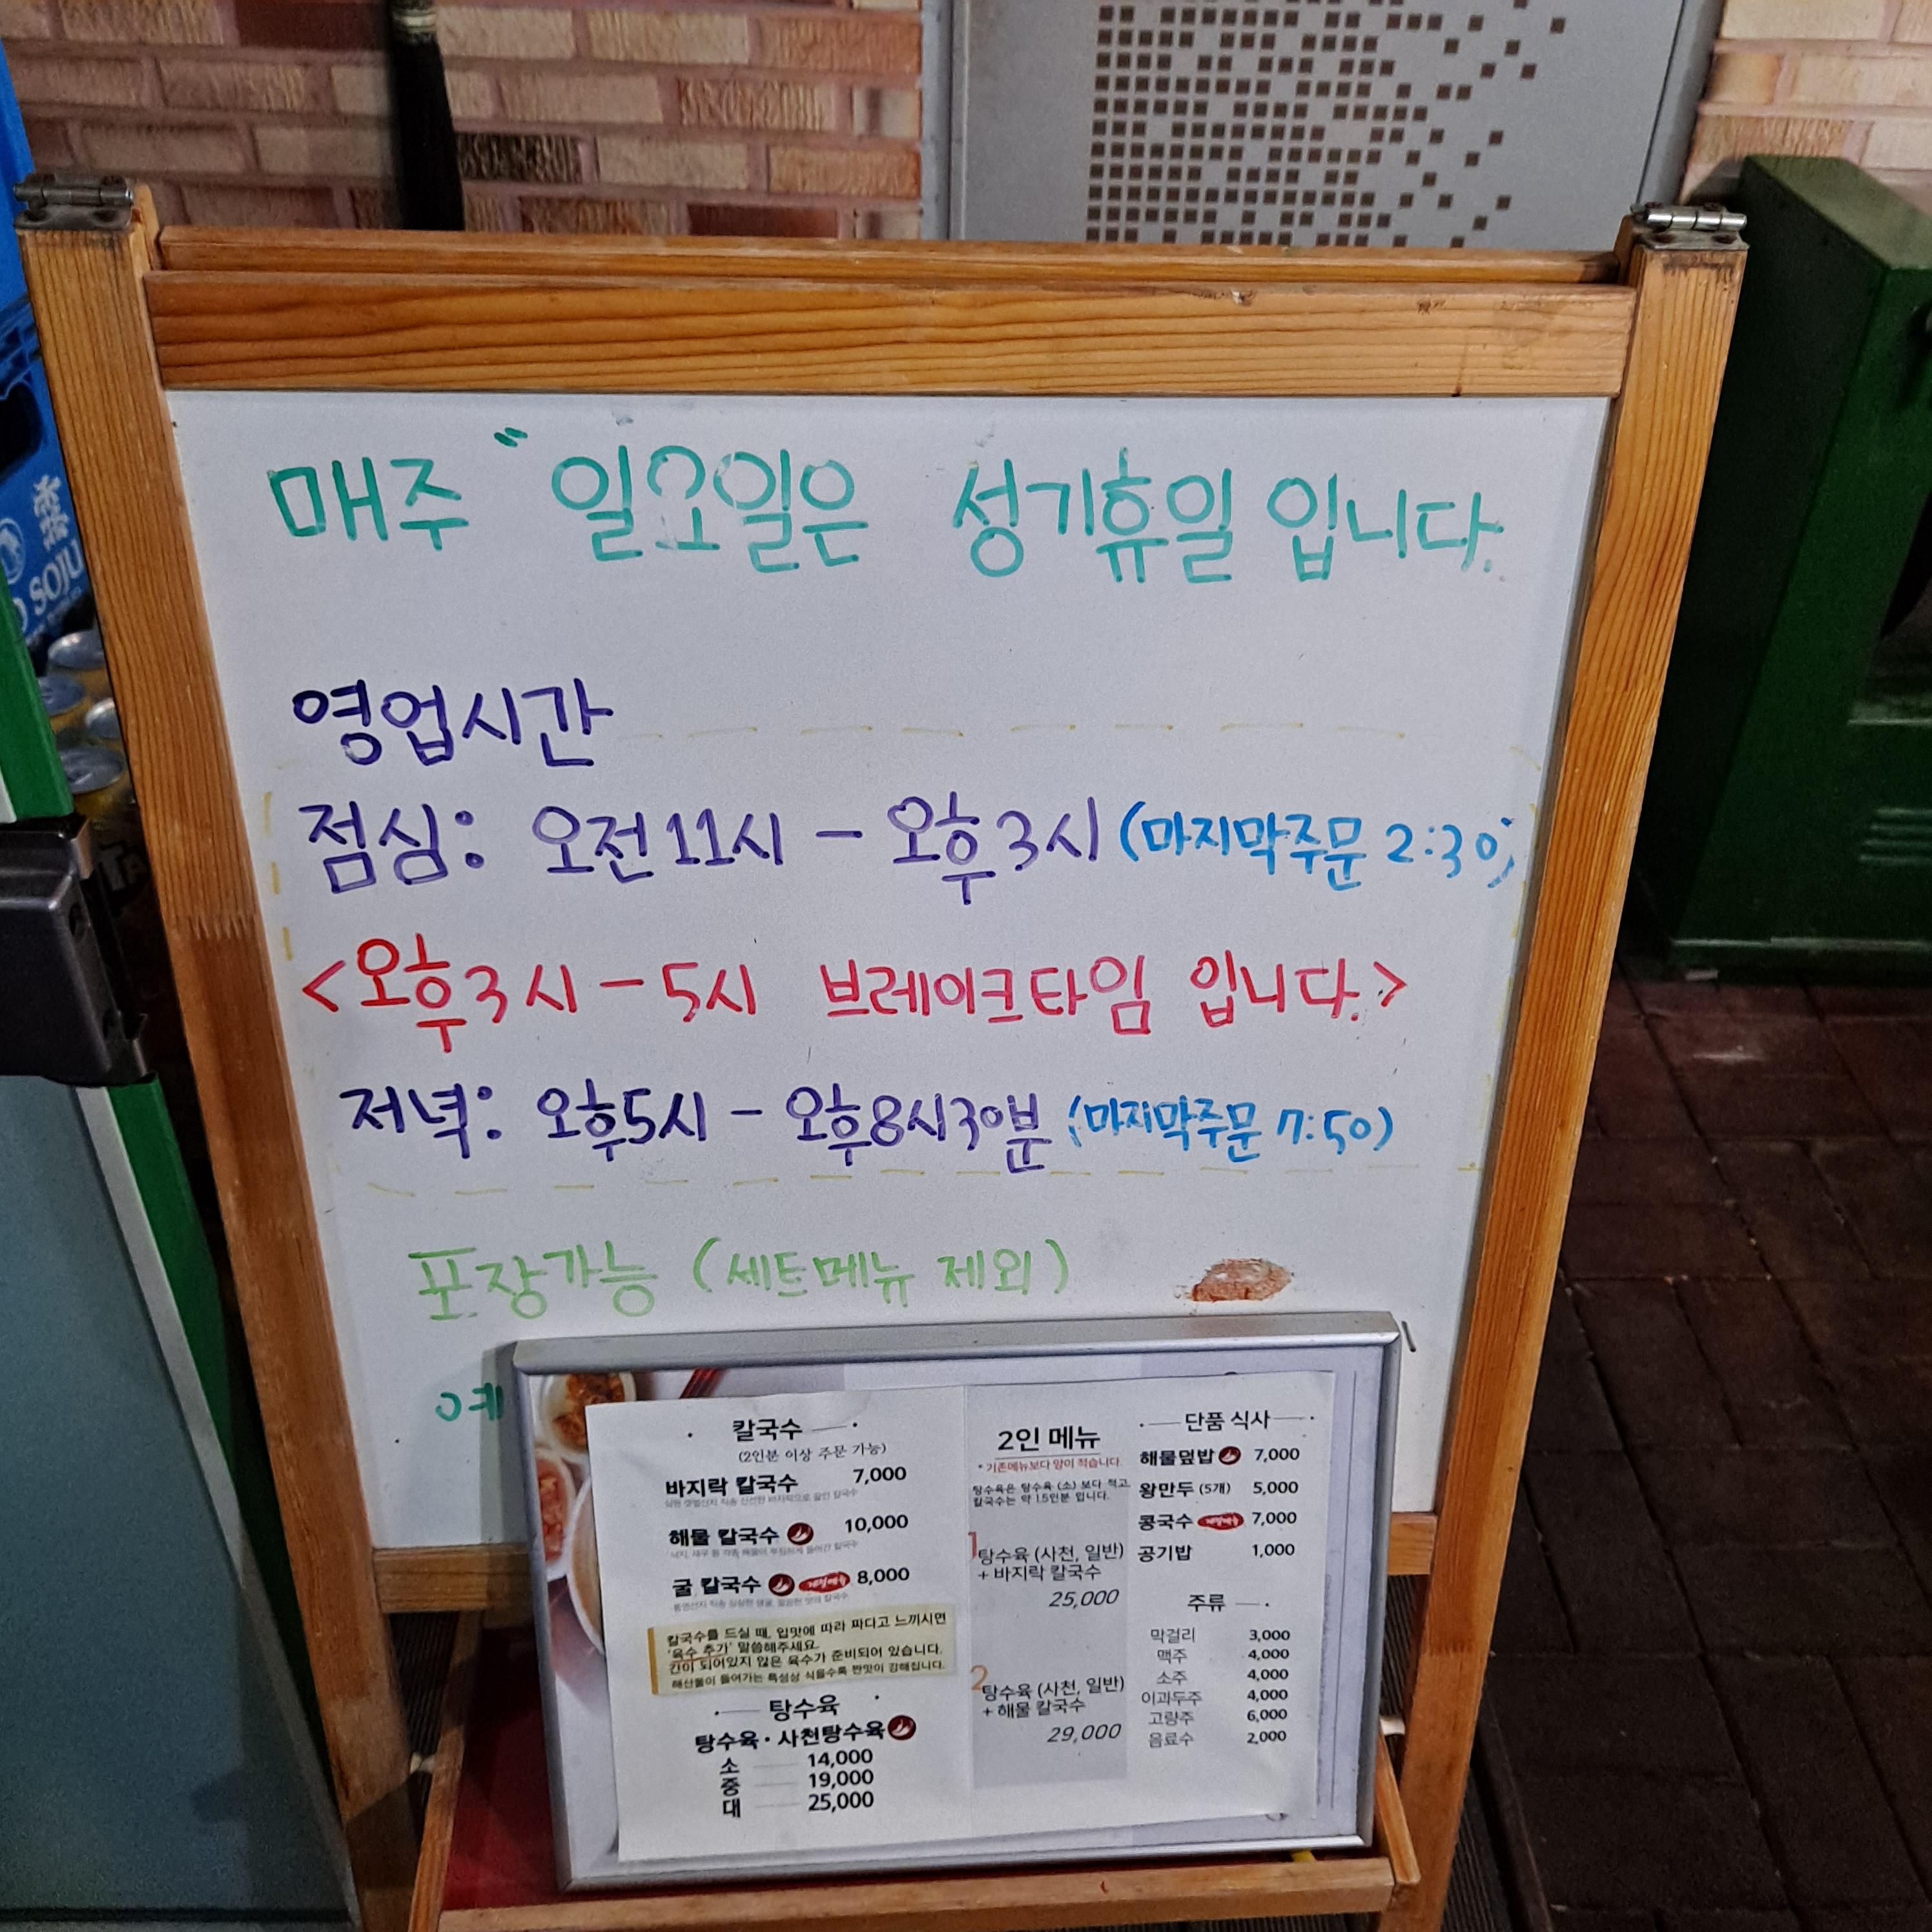 매주 " 일요일은 성기휴일 입니다.
영업시간
점심: 오전11시 - 오후3시 (마지막주문 2:30)
<오후3시 - 5시 브레이크타임 입니다.>
저녁: 오후5시 - 오후8시30분 (마지막주문 7:50)
포장가능 (세트메뉴 제외)
예
SOJU
칼국수
(2인분 이상 주문 가능)
바지락 칼국수 7,000
해물 칼국수 10,000
굴 칼국수 계절메뉴 8,000
칼국수를 드실 때, 입맛에 따라 짜다고 느끼시면
'육수 추가' 말씀해주세요.
간이 되어있지 않은 육수가 준비되어 있습니다.
해산물이 들어가는 특성상 식을수록 짠맛이 강해집니다.
탕수육
탕수육 · 사천탕수육
소 14,000
중 19,000
대 25,000
2인 메뉴
* 기존메뉴보다 양이 적습니다.
탕수육은 탕수육 (소) 보다 적고,
칼국수는 약 1.5인분 입니다.
1
탕수육 (사천, 일반)
+ 바지락 칼국수
25,000
2
탕수육 (사천, 일반)
+ 해물 칼국수
29,000
단품 식사
해물덮밥 7,000
왕만두 (5개) 5,000
콩국수 계절메뉴 7,000
공기밥 1,000
주류
막걸리 3,000
맥주 4,000
소주 4,000
이과두주 4,000
고량주 6,000
음료수 2,000